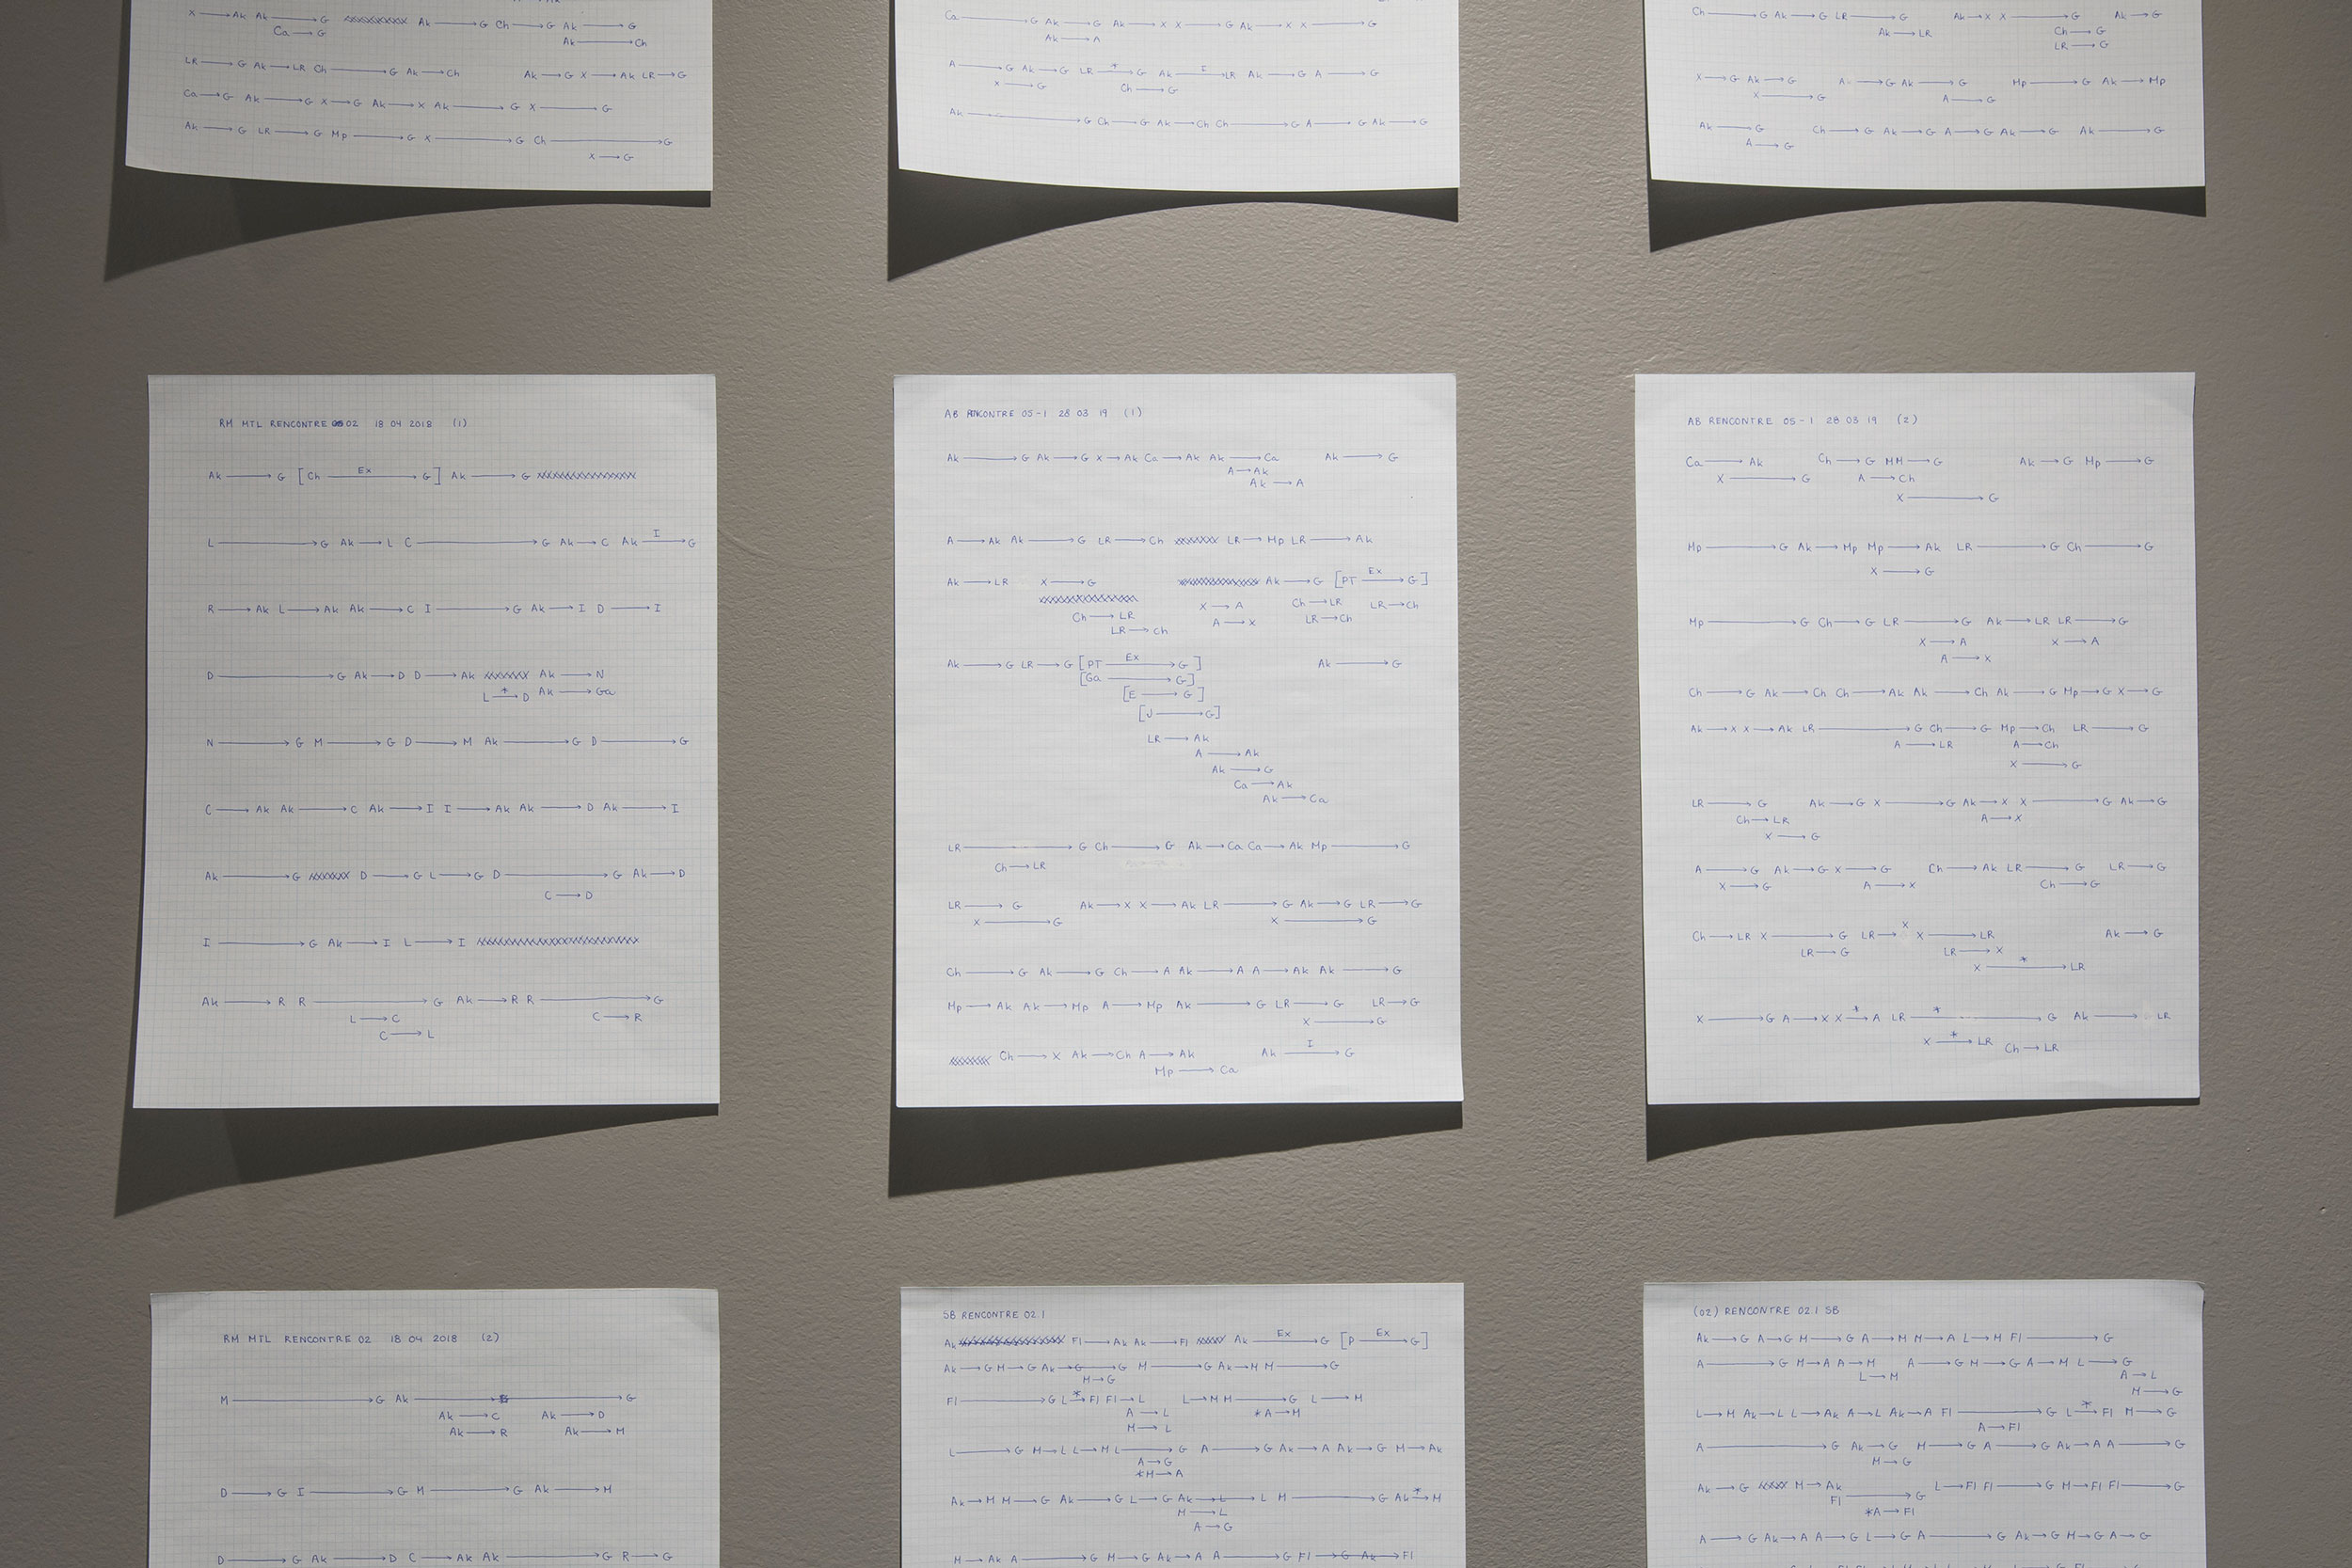 X → Ak Ak → G Ak → G Ch → G Ak → G
Ca → G Ak → Ch
LR → G Ak → LR Ch → G Ak → Ch Ak → G X → Ak LR → G
Ca → G Ak → G X → G Ak → X Ak → G X → G
Ak → G LR → G Mp → G X → G Ch → G
X → G
Ca → G Ak → G Ak → X X → G Ak → X X → G
Ak → A
A → G Ak → G LR *→ G Ak I→ LR Ak → G A → G
X → G Ch → G
Ak → G Ch → G Ak → Ch Ch → G A → G Ak → G
Ch → G Ak → G LR → G Ak → X X → G Ak → G
Ak → LR Ch → G
LR → G
X → G Ak → G A → G Ak → G Mp → G Ak → Mp
X → G A → G
Ak → G Ch → G Ak → G A → G Ak → G Ak → G
A → G
RM MTL RENCONTRE 02 18 04 2018 (1)
Ak → G [Ch Ex→ G] Ak → G
L → G Ak → L C → G Ak → C Ak I→ G
R → Ak L → Ak Ak → C I → G Ak → I D → I
D → G Ak → D D → Ak Ak → N
L *→ D Ak → Ga
N → G M → G D → M Ak → G D → G
C → Ak Ak → C Ak → I I → Ak Ak → D Ak → I
Ak → G D → G L → G D → G Ak → D
C → D
I → G Ak → I L → I
Ak → R R → G Ak → R R → G
L → C C → R
C → L
AB RENCONTRE 05-1 28 03 19 (1)
Ak → G Ak → G X → Ak Ca → Ak Ak → Ca Ak → G
A → Ak
Ak → A
A → Ak Ak → G LR → Ch LR → Mp LR → Ak
Ak → LR X → G Ak → G [PT Ex→ G]
X → A Ch → LR LR → Ch
Ch → LR A → X LR → Ch
LR → Ch
Ak → G LR → G [PT Ex→ G] Ak → G
[Ga → G]
[E → G]
[J → G]
LR → Ak
A → Ak
Ak → G
Ca → Ak
Ak → Ca
LR → G Ch → G Ak → Ca Ca → Ak Mp → G
Ch → LR
LR → G Ak → X X → Ak LR → G Ak → G LR → G
X → G X → G
Ch → G Ak → G Ch → A Ak → A A → Ak Ak → G
Mp → Ak Ak → Mp A → Mp Ak → G LR → G LR → G
X → G
Ch → X Ak → Ch A → Ak Ak I→ G
Mp → Ca
AB RENCONTRE 05-1 28 03 19 (2)
Ca → Ak Ch → G MM → G Ak → G Mp → G
X → G A → Ch
X → G
Mp → G Ak → Mp Mp → Ak LR → G Ch → G
X → G
Mp → G Ch → G LR → G Ak → LR LR → G
X → A X → A
A → X
Ch → G Ak → Ch Ch → Ak Ak → Ch Ak → G Mp → G X → G
Ak → X X → Ak LR → G Ch → G Mp → Ch LR → G
A → LR A → Ch
X → G
LR → G Ak → G X → G Ak → X X → G Ak → G
Ch → LR A → X
X → G
A → G Ak → G X → G Ch → Ak LR → G LR → G
X → G A → X Ch → G
Ch → LR X → G LR → X X → LR Ak → G
LR → G LR → X
X *→ LR
X → G A → X X *→ A LR *→ G Ak → LR
X *→ LR Ch → LR
RM MTL RENCONTRE 02 18 04 2018 (2)
M → G Ak → G
Ak → C Ak → D
Ak → R Ak → M
D → G I → G M → G Ak → M
D → G Ak → D C → Ak Ak → G R → G
SB RENCONTRE 02.1
Ak Fl → Ak Ak → Fl Ak Ex→ G [P Ex→ G]
Ak → G M → G Ak → G → G M → G Ak → M M → G
M → G
Fl → G L *→ Fl Fl → L L → M M → G L → M
A → L *A → M
M → L
L → G M → L L → M L → G A → G Ak → A Ak → G M → Ak
A → G
*M → A
Ak → M M → G Ak → G L → G Ak → L → L M → G Ak *→ M
M → L
A → G
M → Ak A → G M → G Ak → A A → G Fl → G Ak → Fl
(02) RENCONTRE 02.1 SB
Ak → G A → G M → G A → M M → A L → M Fl → G
A → G M → A A → M A → G M → G A → M L → G
L → M A → L
M → G
L → M Ak → L L → Ak A → L Ak → A Fl → G L *→ Fl M → G
A → Fl
A → G Ak → G M → G A → G Ak → A A → G
M → G
Ak → G M → Ak L → Fl Fl → G M → Fl Fl → G
Fl → G
*A → Fl
A → G Ak → A A → G L → G A → G Ak → G M → G A → G